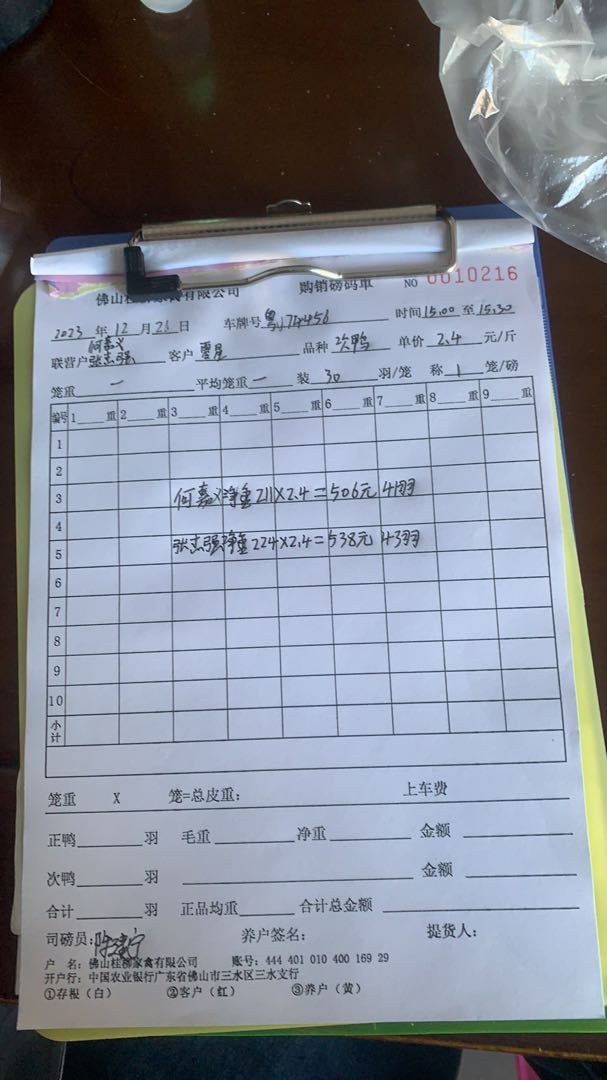 佛山桂柳家禽有限公司 购销磅码单 NO 0010216
2023 年 12 月 26 日 车牌号 时间 15:00 至 15:30
何嘉义
联营户 张志强 客户 品种 次鸭 单价 2.4 元/斤
笼重 一 平均笼重 一 装 30 羽/笼 称 1 笼/磅
编号 1 重 2 重 3 重 4 重 5 重 6 重 7 重 8 重 9 重
1
2
3 何嘉义净重211×2.4=506元 41羽
4
5 张志强净重224×2.4=538元 43羽
6
7
8
9
10
小计
笼重 X 笼=总皮重: 上车费
正鸭 羽 毛重 净重 金额
次鸭 羽 金额
合计 羽 正品均重 合计总金额
司磅员: 养户签名: 提货人:
户 名: 佛山桂柳家禽有限公司 账号: 444 401 010 400 169 29
开户行: 中国农业银行广东省佛山市三水区三水支行
①存根(白) ②客户(红) ③养户(黄)